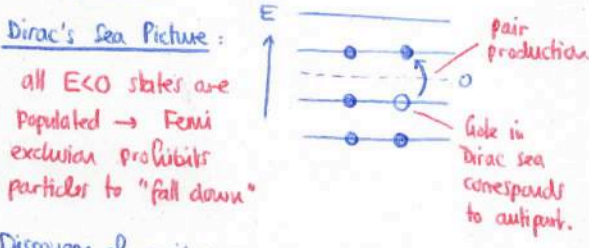 Dirac's Sea Picture:
all E<0 states are
populated → Fermi
exclusion prohibits
particles to "fall down"
E
0
pair
production
Hole in
Dirac sea
corresponds
to antipart.
Discovery of